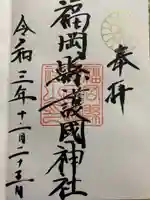 奉拝
福岡縣護國神社
令和三年十一月二十五日